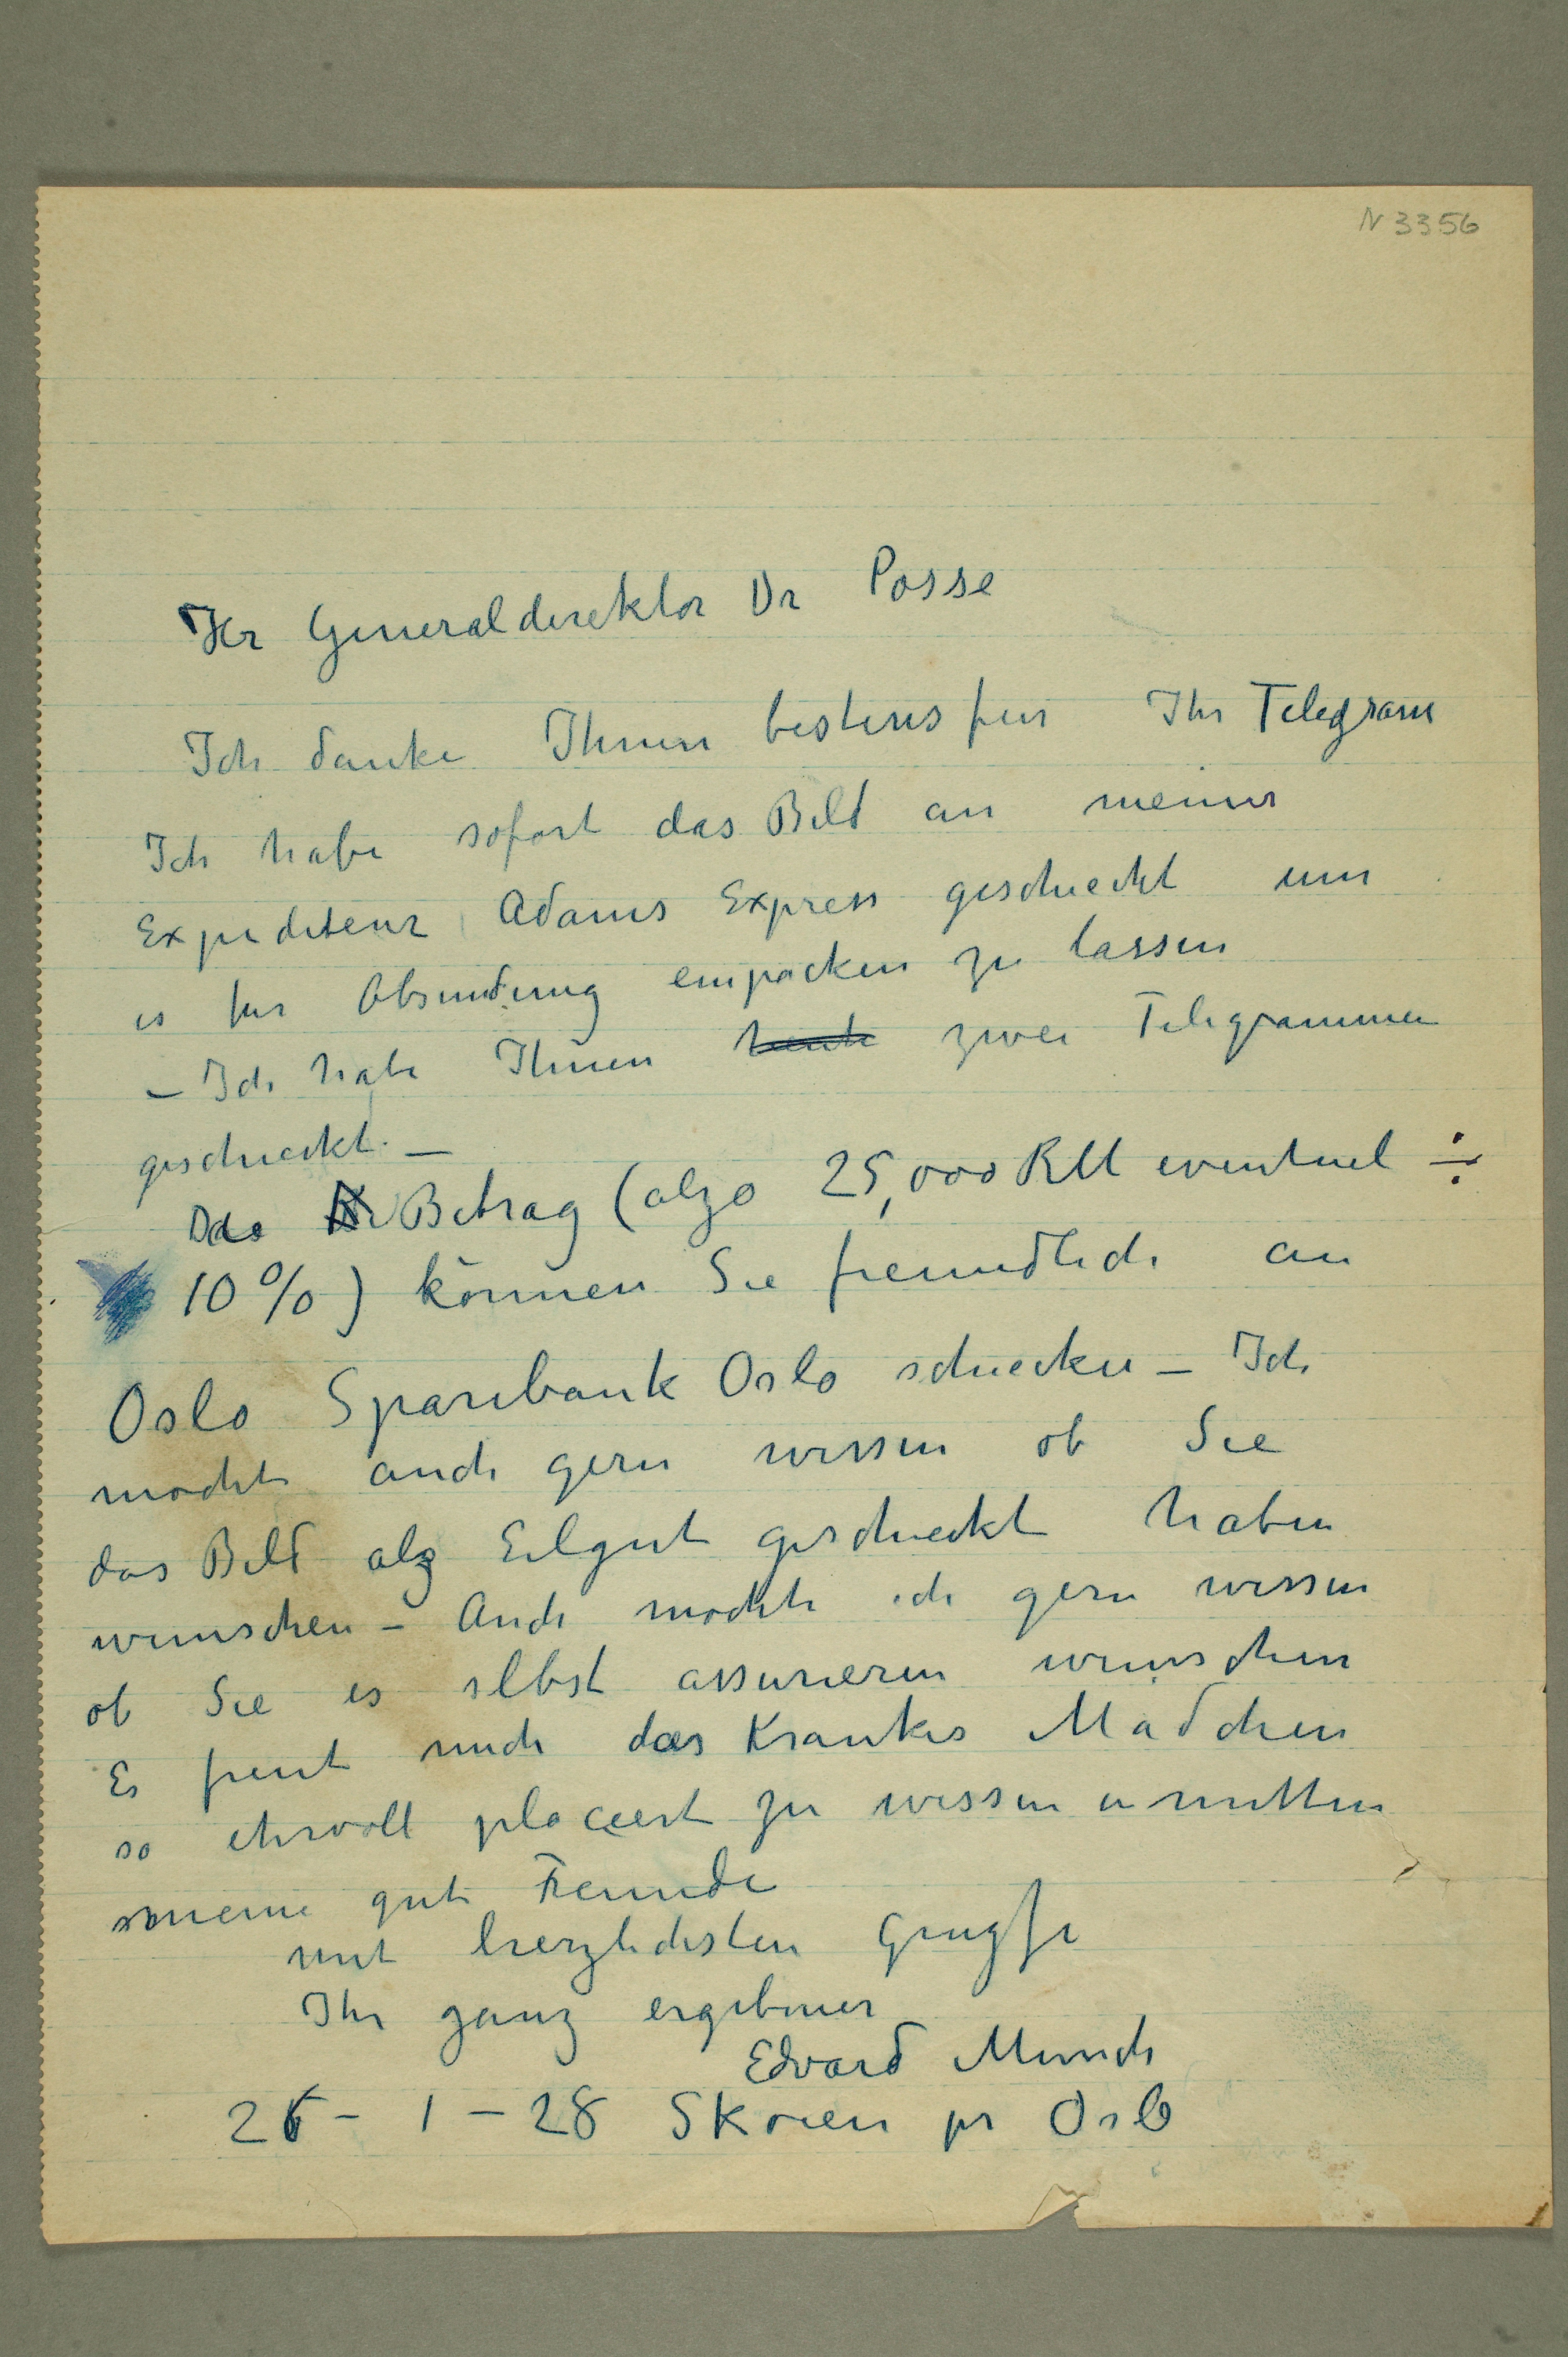 N 3356
Hr Generaldirektor Dr Posse
Ich danke Ihnen bestens für Ihr Telegram
Ich habe sofort das Bild an meiner
Expediteur Adams Express geschickt um
es fur Absendung einpacken zu lassen
– Ich habe Ihnen heute zwei Telegrammen
geschickt. –
Das Betrag (alzo 25,000 RM eventuel ÷
10%) können Sie freundlich an
Oslo Sparebank Oslo schicken – Ich
mochte auch gern wissen ob Sie
das Bild alz Eilgut geschickt haben
wunschen – Auch mochte ich gern wissen
ob Sie es selbst assurieren wünschen
Es freut mich das Krankes Mädchen
so ehrvoll placiert zu wissen in mitten
meine gute Freunde
mit herzlichsten Grugse
Ihr ganz ergebener
Edvard Munch
26 – 1 – 28 Skøien pr Oslo